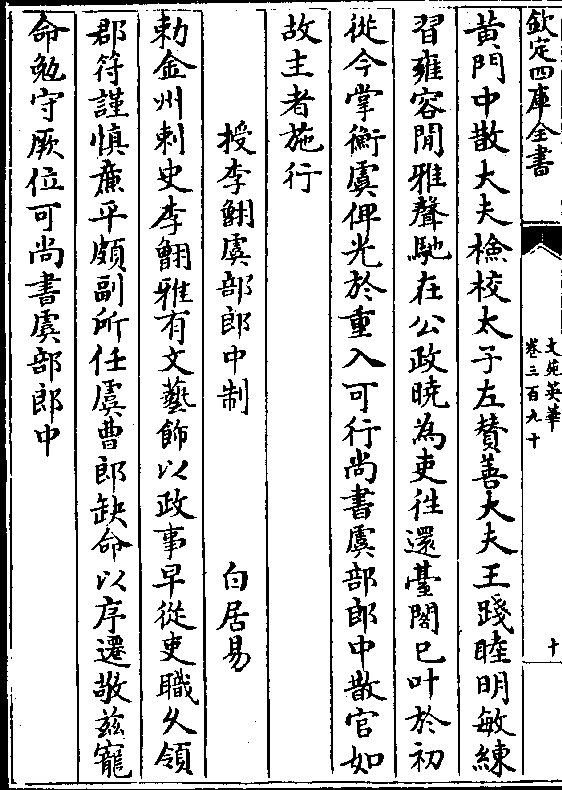 欽定四庫全書
文苑英華
卷三百九十
十
黃門中散大夫檢校太子左賛善大夫王踐睦明敏練
習雍容閒雅聲馳在公政曉為吏徃還臺閣已叶於初
從今掌衡虞俾光於重入可行尚書虞部郎中散官如
故主者施行
授李翻虞部郎中制 白居易
勅金州刺史李翻雅有文藝飾以政事早從吏職久領
郡符謹慎㢘平頗副所任虞曹郎缺命以序遷敬兹寵
命勉守厥位可尚書虞部郎中